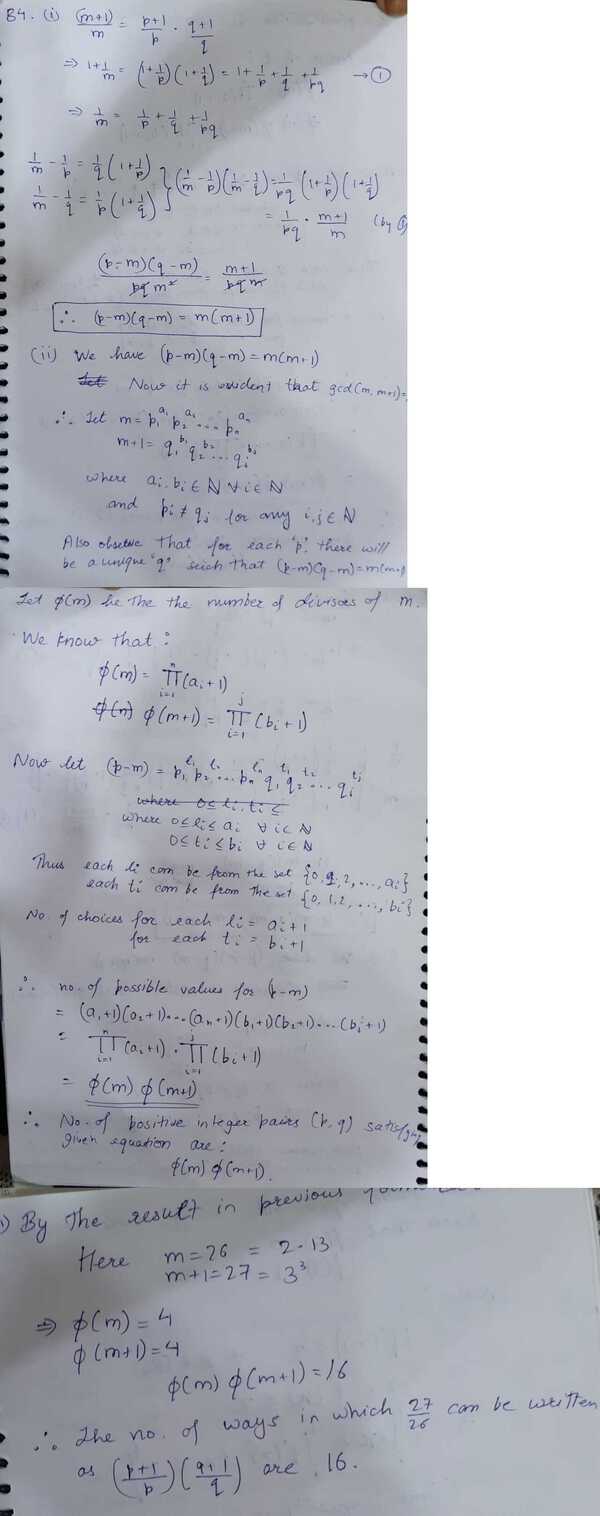 B4. (i) (m+1)/m = (p+1)/p · (q+1)/q
⇒ 1+1/m = (1+1/p)(1+1/q) = 1+1/p+1/q+1/pq → ①
⇒ 1/m = 1/p + 1/q + 1/pq
1/m − 1/p = 1/q (1+1/p)
1/m − 1/q = 1/p (1+1/q) } (1/m − 1/p)(1/m − 1/q) = 1/pq (1+1/p)(1+1/q)
= 1/pq · (m+1)/m (by ①)
(p−m)(q−m)/pq m² = m+1/pq m
∴ (p−m)(q−m) = m(m+1)
(ii) We have (p−m)(q−m) = m(m+1)
Let Now it is evident that gcd(m, m+1)=
∴ Let m = p₁^a₁ p₂^a₂ ... pₙ^aₙ
m+1 = q₁^b₁ q₂^b₂ ... qⱼ^bⱼ
where aᵢ, bᵢ ∈ N ∀ i ∈ N
and pᵢ ≠ qⱼ for any i, j ∈ N
Also observe that for each 'p' there will
be a unique 'q' such that (p−m)(q−m) = m(m+1
Let ϕ(m) be the the number of divisors of m.
We know that :
ϕ(m) = ∏ᵢ₌₁ⁿ (aᵢ+1)
ϕ(n) ϕ(m+1) = ∏ᵢ₌₁ʲ (bᵢ+1)
Now let (p−m) = p₁^l₁ p₂^l₂ ... pₙ^lₙ q₁^t₁ q₂^t₂ ... qⱼ^tⱼ
where 0 ≤ lᵢ, tᵢ ≤
where 0 ≤ lᵢ ≤ aᵢ ∀ i ∈ N
0 ≤ tᵢ ≤ bᵢ ∀ i ∈ N
Thus each lᵢ can be from the set {0, 1, 2, ..., aᵢ}
each tᵢ can be from the set {0, 1, 2, ..., bᵢ}
No. of choices for each lᵢ = aᵢ+1
for each tᵢ = bᵢ+1
∴ no. of possible values for (p−m)
= (a₁+1)(a₂+1)...(aₙ+1)(b₁+1)(b₂+1)...(bⱼ+1)
= ∏ᵢ₌₁ⁿ (aᵢ+1) · ∏ᵢ₌₁ʲ (bᵢ+1)
= ϕ(m) ϕ(m+1)
∴ No. of positive integer pairs (p, q) satisfying
given equation are :
ϕ(m) ϕ(m+1).
) By the result in previous
Here m = 26 = 2·13
m+1 = 27 = 3³
⇒ ϕ(m) = 4
ϕ(m+1) = 4
ϕ(m) ϕ(m+1) = 16
∴ The no. of ways in which 27/26 can be written
as ((p+1)/p)((q+1)/q) are 16.